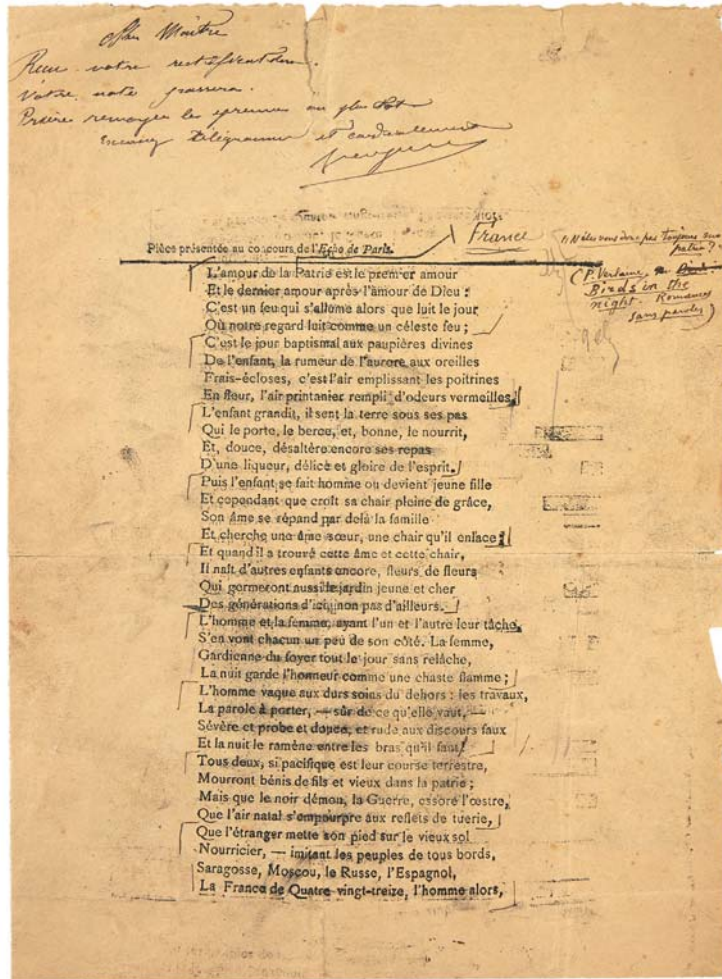 Mon Maître
Reçu votre
Votre note passera.
Prière renvoyer les épreuves au plus tôt
et cordialement
Pièce présentée au concours de l'Echo de Paris.
France
pas toujours ma
patrie?
(P. Verlaine.
Birds in the
night. Romances
sans paroles)
L'amour de la Patrie est le premier amour
Et le dernier amour après l'amour de Dieu :
C'est un feu qui s'allume alors que luit le jour
Où notre regard luit comme un céleste feu ;
C'est le jour baptismal aux paupières divines
De l'enfant, la rumeur de l'aurore aux oreilles
Frais-écloses, c'est l'air emplissant les poitrines
En fleur, l'air printanier rempli d'odeurs vermeilles.
L'enfant grandit, il sent la terre sous ses pas
Qui le porte, le berce, et, bonne, le nourrit,
Et, douce, désaltère encore ses repas
D'une liqueur, délice et gloire de l'esprit.
Puis l'enfant se fait homme ou devient jeune fille
Et cependant que croît sa chair pleine de grâce,
Son âme se répand par delà la famille
Et cherche une âme sœur, une chair qu'il enlace ;
Et quand il a trouvé cette âme et cette chair,
Il naît d'autres enfants encore, fleurs de fleurs
Qui germeront aussi le jardin jeune et cher
Des générations d'ici, non pas d'ailleurs.
L'homme et la femme, ayant l'un et l'autre leur tâche,
S'en vont chacun un peu de son côté. La femme,
Gardienne du foyer tout le jour sans relâche,
La nuit garde l'honneur comme une chaste flamme ;
L'homme vaque aux durs soins du dehors : les travaux,
La parole à porter, — sûr de ce qu'elle vaut, —
Sévère et probe et douce, et rude aux discours faux
Et la nuit le ramène entre les bras qu'il faut.
Tous deux, si pacifique est leur course terrestre,
Mourront bénis de fils et vieux dans la patrie ;
Mais que le noir démon, la Guerre, essore l'œstre,
Que l'air natal s'empourpre aux reflets de tuerie,
Que l'étranger mette son pied sur le vieux sol
Nourricier, — imitant les peuples de tous bords,
Saragosse, Moscou, le Russe, l'Espagnol,
La France de Quatre vingt-treize, l'homme alors,